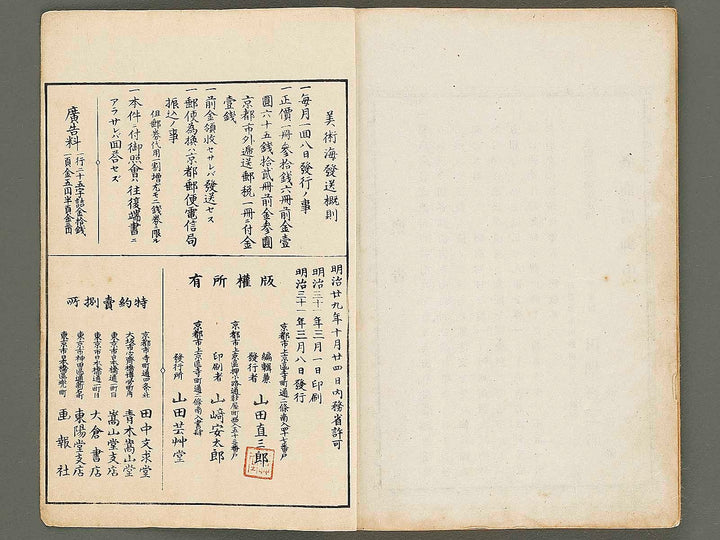 美術海發送概則
一毎月一回八日發行ノ事
一正價一冊参拾錢六冊前金壹
圓六十五錢拾貳冊前金参圓
京都市外遞送郵税一冊ニ付金
壹錢
一前金領收セサレバ發送セス
一郵便為換ハ京都郵便電信局
振込ノ事
但郵券代用一割増尤モ二錢券ニ限ル
一本件ニ付御照會ハ往復端書ニ
アラサレバ回答セズ
廣告料
一行二十五字詰金拾錢
一頁金五円半頁金三円
明治廿九年十月廿四日内務省許可
明治三十一年三月一日印刷
明治三十一年三月八日發行
版權所有
京都市上京區寺町通二條南入
編輯兼
發行者 山田直三郎
京都市上京區押小路通
印刷者 山﨑安太郎
京都市上京區寺町通二條南入
發行所 山田芸艸堂
特約賣捌所
京都市寺町通四条 田中文求堂
大坂市心齋橋 青木嵩山堂
東京市日本橋通一町目 嵩山堂支店
東京市日本橋通一町目 大倉書店
東京市神田區 東陽堂支店
東京市日本橋區兜町 画報社